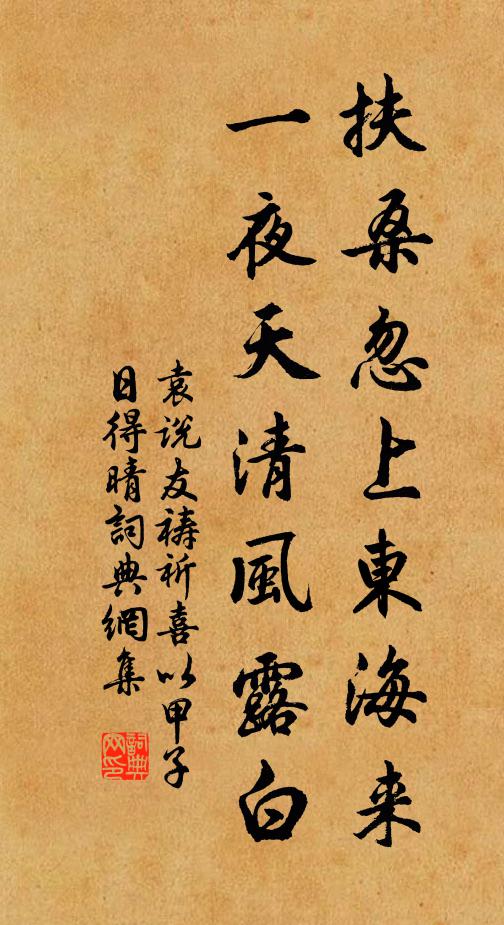 扶桑忽上東海来
一夜天清風露白
袁说友禱祈喜以甲子
日得晴詞典網集
詞典
网印